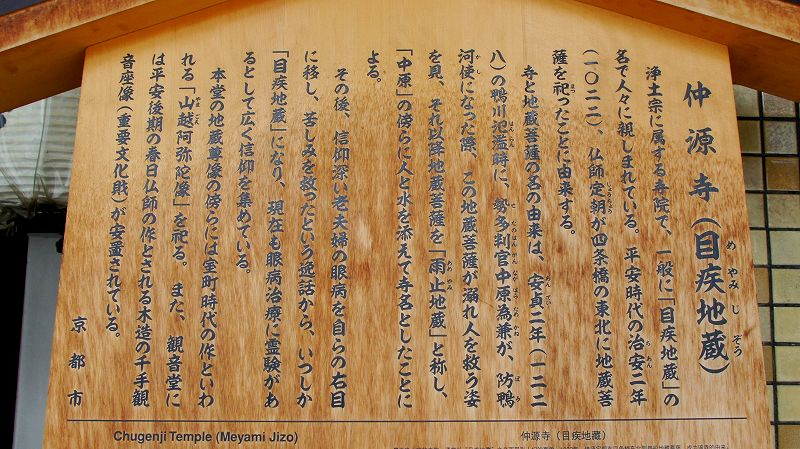 仲源寺(目疾地蔵)
めやみじぞう
浄土宗に属する寺院で、一般に「目疾地蔵」の
名で人々に親しまれている。平安時代の治安二年
(一〇二二)、仏師定朝が四条橋の東北に地蔵菩
薩を祀ったことに由来する。
寺と地蔵菩薩の名の由来は、安貞二年(一二二
八)の鴨川氾濫時に、勢多判官中原為兼が、防鴨
河使になった際、この地蔵菩薩が溺れ人を救う姿
を見、それ以降地蔵菩薩を「雨止地蔵」と称し、
「中原」の傍らに人と水を添えて寺名としたことに
よる。
その後、信仰深い老夫婦の眼病を自らの右目
に移し、苦しみを救ったという逸話から、いつしか
「目疾地蔵」になり、現在も眼病治療に霊験があ
るとして広く信仰を集めている。
本堂の地蔵尊像の傍らには室町時代の作といわ
れる「山越阿弥陀像」を祀る。また、観音堂に
は平安後期の春日仏師の作とされる木造の千手観
音座像(重要文化財)が安置されている。
京都市
Chugenji Temple (Meyami Jizo)
仲源寺(目疾地藏)